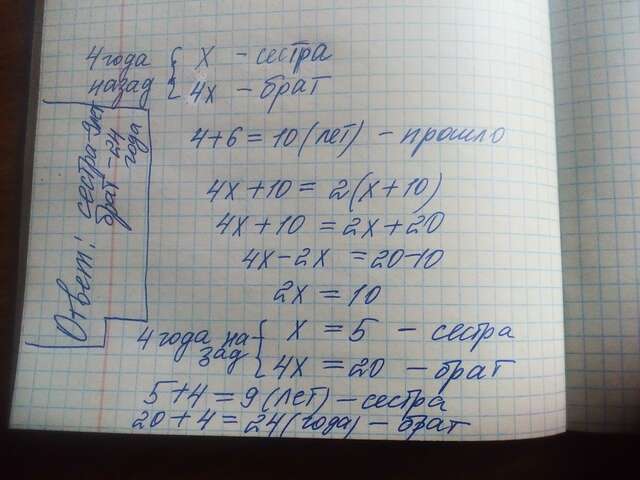 4 года назад { x - сестра
4x - брат
4+6=10 (лет) - прошло
4x+10=2(x+10)
4x+10=2x+20
4x-2x=20-10
2x=10
4 года на
зад { x=5 - сестра
4x=20 - брат
5+4=9 (лет) - сестра
20+4=24 (года) - брат
Ответ: сестра - 9 лет
брат - 24
года